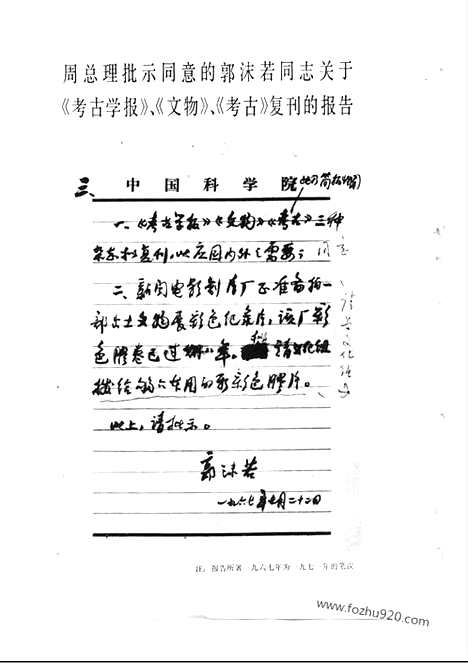 周总理批示同意的郭沫若同志关于
《考古学报》、《文物》、《考古》复刊的报告
三、
中国科学院
一、《考古学报》《文物》《考古》三种
杂志拟复刊，以应国内外之需要；
二、新闻电影制片厂正准备拍一
部出土文物展彩色纪录片，该厂彩
色胶卷已过期八年，请
拨给够六本用的新彩色胶片。
以上，请批示。
郭沫若
一九六七年七月二十二日
注：报告所署一九六七年为一九七一年的笔误
www.fozhu920.com